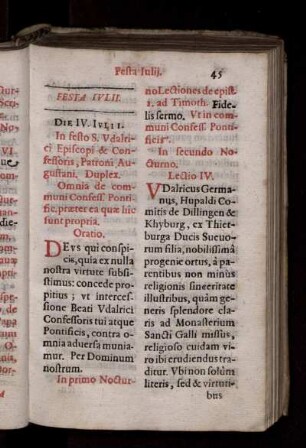 Festa Iulij.
45
FESTA IVLII.
DIE IV. IVLII.
In festo S. Vdalri-
ci Episcopi & Con-
fessoris, Patroni Au-
gustani. Duplex.
Omnia de com-
muni Confess. Ponti-
fic. præter ea quæ hîc
sunt propria.
Oratio.
DEvs qui conspi-
cis, quia ex nulla
nostra virtute subsi-
stimus: concede pro-
pitius; vt interces-
sione Beati Vdalrici
Confessoris tui atque
Pontificis, contra o-
mnia aduersa munia-
mur. Per Dominum
nostrum.
In primo Noctur-
no Lectiones de epist.
1. ad Timoth. Fide-
lis sermo. Vt in com-
muni Confess. Pon-
tificis.
In secundo No-
cturno.
Lectio IV.
VDalricus Germa-
nus, Hupaldi Co-
mitis de Dillingen &
Khyburg, ex Thiet-
burga Ducis Sueuo-
rum filia, nobilissimâ
progenie ortus, à pa-
rentibus non minùs
religionis sinceritate
illustribus, quàm ge-
neris splendore cla-
ris ad Monasterium
Sancti Galli missus,
religioso cuidam vi-
ro ibi erudiendus tra-
ditur. Vbi non solùm
literis, sed & virtuti-
bus